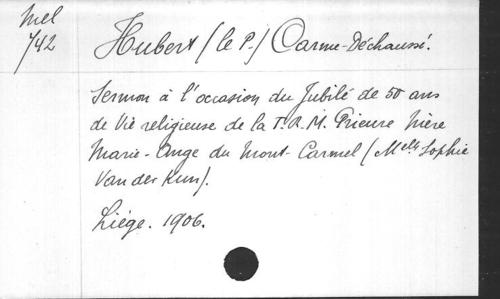 Mel
742
Hubert (le P.) Carme-Déchaussé.
Sermon à l'occasion du Jubilé de 50 ans
de Vie religieuse de la T.R.M. Prieure Mère
Marie-Ange du Mont-Carmel (Melle Sophie
Van der Kun).
Liége. 1906.